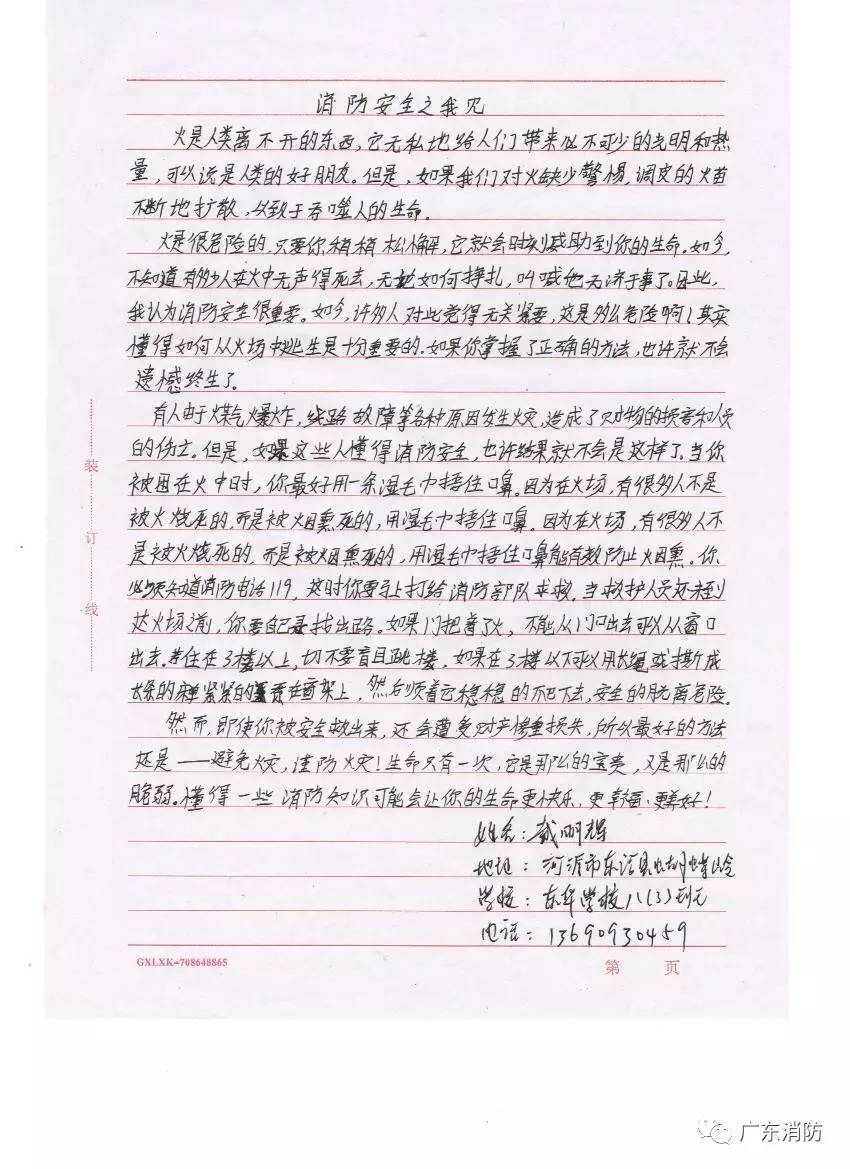 消防安全之我见
火是人类离不开的东西,它无私地给人们带来必不可少的光明和热
量,可以说是人类的好朋友。但是,如果我们对火缺少警惕,调皮的火苗
不断地扩散,以致于吞噬人的生命。
火是很危险的,只要你稍稍松懈,它就会时刻威胁到你的生命。如今,
不知道有多少人在火中无声得死去,无论如何挣扎,叫喊也无济于事了。因此,
我认为消防安全很重要。如今,许多人对此觉得无关紧要,这是多么危险啊!其实
懂得如何从火场中逃生是十分重要的。如果你掌握了正确的方法,也许就不会
遗憾终生了。
有人由于煤气爆炸,线路故障等各种原因发生火灾,造成了财物的损害和人员
的伤亡。但是,如果这些人懂得消防安全,也许结果就不会是这样了。当你
被困在火中时,你最好用一条湿毛巾捂住口鼻。因为在火场,有很多人不是
被火烧死的,而是被烟熏死的,用湿毛巾捂住口鼻。因为在火场,有很多人不
是被火烧死的,而是被烟熏死的,用湿毛巾捂住口鼻能有效防止烟熏。你
必须知道消防电话119,这时你要马上打给消防部队求救。当救护人员还未到
达火场之前,你要自己寻找出路。如果门把着了火,不能从门口出去可以从窗口
出去。若住在3楼以上,切不要盲目跳楼,如果在3楼以下可以用长绳或撕成
长条的床单紧紧的在窗架上,然后顺着它稳稳的爬下去,安全的脱离危险。
然而,即使你被安全救出来,还会遭受财产惨重损失,所以最好的方法
还是——避免火灾,谨防火灾!生命只有一次,它是那么的宝贵,又是那么的
脆弱。懂得一些消防知识可能会让你的生命更快乐、更幸福、更美好!
姓名:戴明辉
地址:河源市东源县蝴蝶岭
学校:东华学校八(3)班
电话:13690930459
装
订
线
GXLXK-708648865
第 页
广东消防